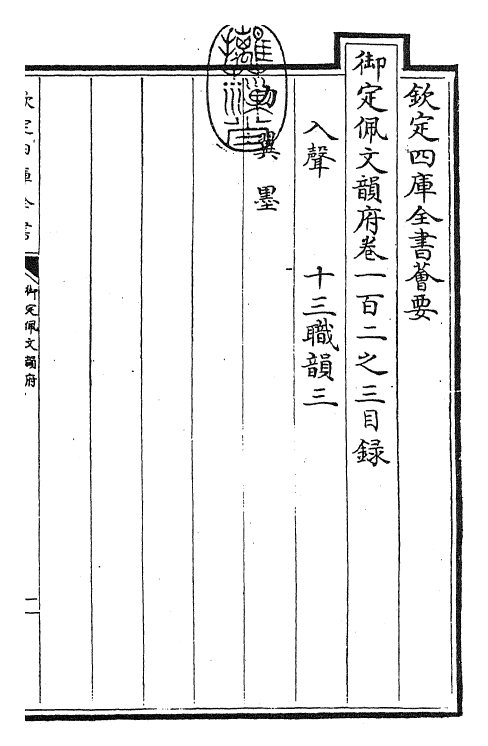 欽定四庫全書薈要
御定佩文韻府卷一百二之三目録
入聲　十三職韻三
翼　墨
欽定四庫全書
御定佩文韻府
一